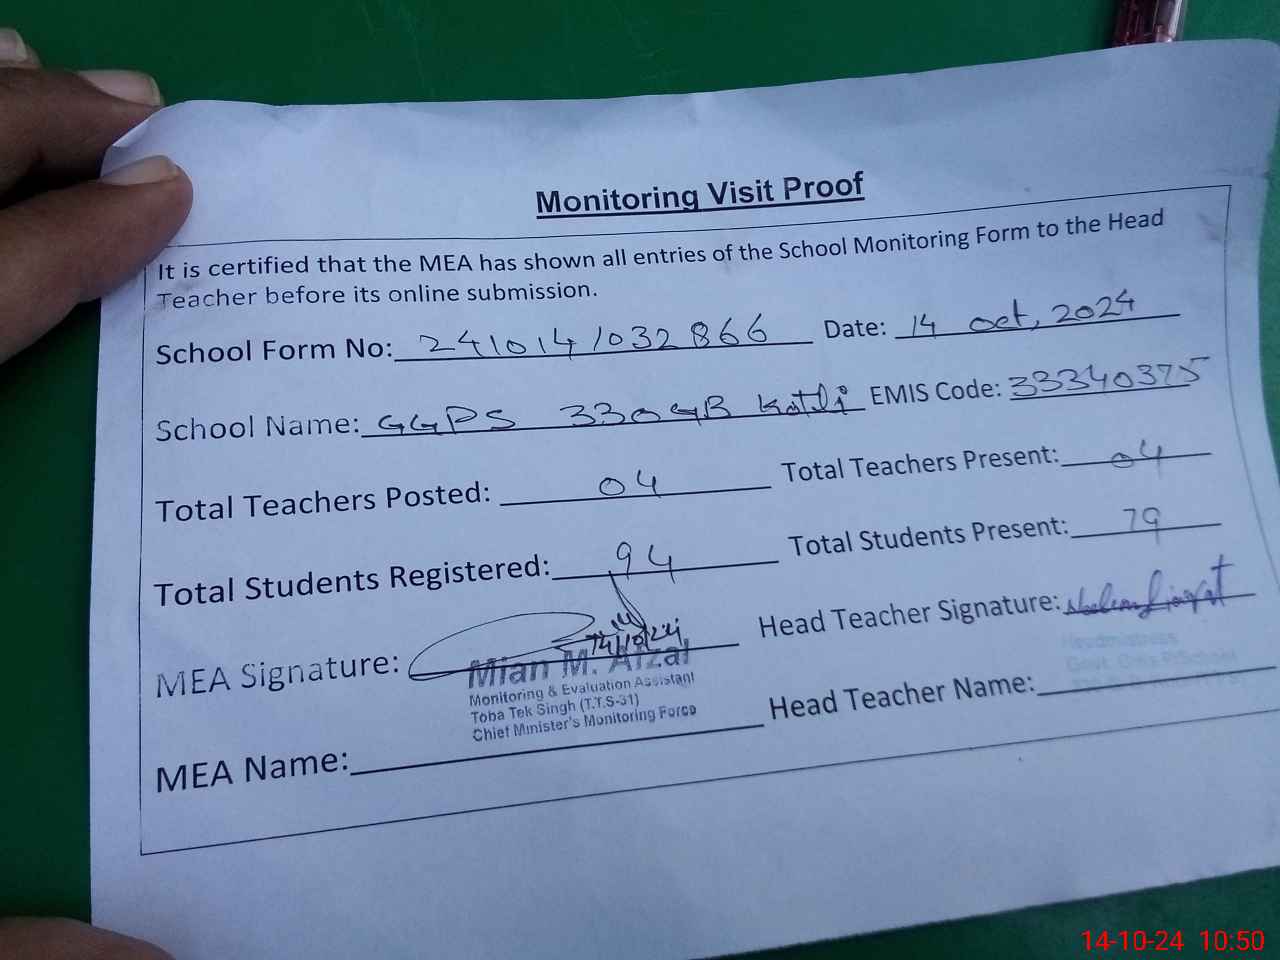 Monitoring Visit Proof
It is certified that the MEA has shown all entries of the School Monitoring Form to the Head
Teacher before its online submission.
School Form No: 241014 1032866 Date: 14 oct, 2024
School Name: GGPS 330GB Katli EMIS Code: 33340375
Total Teachers Posted: 04 Total Teachers Present: 04
Total Students Registered: 94 Total Students Present: 79
MEA Signature: 14/10/24 Head Teacher Signature:
Mian M. Afzal
Monitoring & Evaluation Assistant
Toba Tek Singh (T.T.S-31)
Chief Minister's Monitoring Force
Headmistress
MEA Name: Head Teacher Name:
14-10-24 10:50